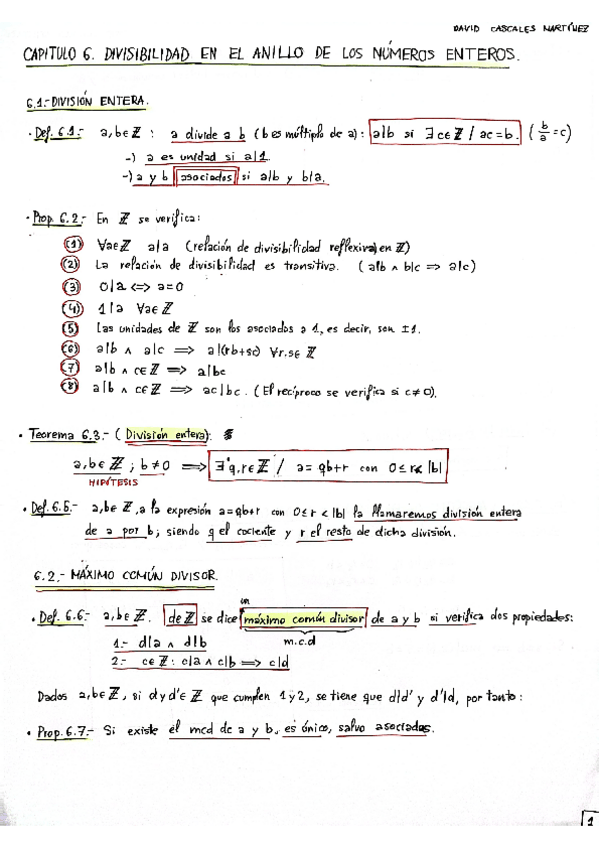 DAVID CASCALES MARTÍNEZ
CAPITULO 6. DIVISIBILIDAD EN EL ANILLO DE LOS NÚMEROS ENTEROS.
6.1.- DIVISIÓN ENTERA.
· Def. 6.1.- a,b∈ℤ : a divide a b (b es múltiplo de a): a|b si ∃c∈ℤ / ac=b. (b/a=c)
-) a es unidad si a|1.
-) a y b asociados si a|b y b|a.
· Prop. 6.2.- En ℤ se verifica:
(1) ∀a∈ℤ a|a (relación de divisibilidad reflexiva) en ℤ)
(2) La relación de divisibilidad es transitiva. (a|b ∧ b|c ⟹ a|c)
(3) 0|a ⟺ a=0
(4) 1|a ∀a∈ℤ
(5) Las unidades de ℤ son los asociados a 1, es decir, son ±1.
(6) a|b ∧ a|c ⟹ a|(rb+sc) ∀r,s∈ℤ
(7) a|b ∧ c∈ℤ ⟹ a|bc
(8) a|b ∧ c∈ℤ ⟹ ac|bc. (El recíproco se verifica si c≠0).
· Teorema 6.3.- (División entera).
a,b∈ℤ ; b≠0 ⟹ ∃¹q,r∈ℤ / a=qb+r con 0≤r<|b|
HIPÓTESIS
· Def. 6.5.- a,b∈ℤ, a la expresión a=qb+r con 0≤r<|b| la llamaremos división entera
de a por b; siendo q el cociente y r el resto de dicha división.
6.2.- MÁXIMO COMÚN DIVISOR.
· Def. 6.6.- a,b∈ℤ. d∈ℤ se dice un máximo común divisor de a y b si verifica dos propiedades:
m.c.d
1.- d|a ∧ d|b
2.- c∈ℤ : c|a ∧ c|b ⟹ c|d
Dados a,b∈ℤ, si d y d'∈ℤ que cumplen 1 y 2, se tiene que d|d' y d'|d, por tanto:
· Prop. 6.7.- Si existe el mcd de a y b, es único, salvo asociados.
1